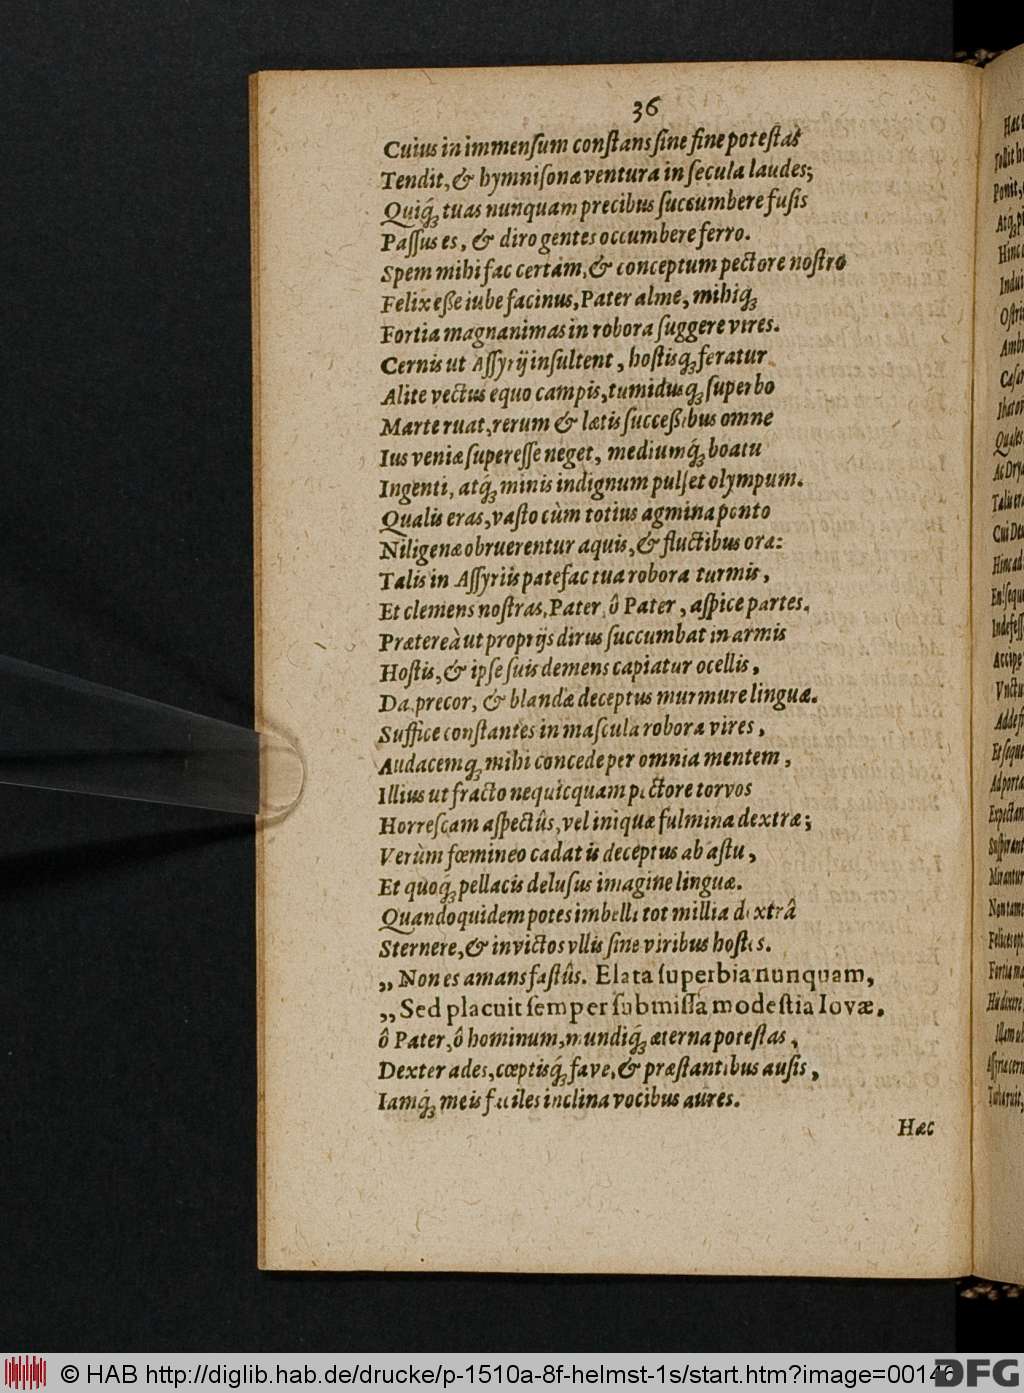 36
Cuius in immensum constans sine fine potestas
Tendit, & hymnisonæ ventura in secula laudes;
Quiq́; tuas nunquam precibus succumbere fusis
Passus es, & diro gentes occumbere ferro.
Spem mihi fac certam, & conceptum pectore nostro
Felix eße iube facinus, Pater alme, mihiq́;
Fortia magnanimas in robora suggere vires.
Cernis ut Assyrij insultent, hostisq́; feratur
Alite vectus equo campis, tumidusq́; superbo
Marte ruat, rerum & lætis succeßibus omne
Ius veniæ superesse neget, mediumq́; boatu
Ingenti, atq́; minis indignum pulset olympum.
Qualis eras, vasto cùm totius agmina ponto
Niligenæ obruerentur aquis, & fluctibus ora:
Talis in Assyriis patefac tua robora turmis,
Et clemens nostras, Pater, ô Pater, aspice partes.
Prætereà ut proprijs dirus succumbat in armis
Hostis, & ipse suis demens capiatur ocellis,
Da precor, & blandæ deceptus murmure linguæ.
Suffice constantes in mascula robora vires,
Audacemq́; mihi concede per omnia mentem,
Illius ut fracto nequicquam pectore torvos
Horrescam aspectûs, vel iniquæ fulmina dextræ;
Verùm fœmineo cadat is deceptus ab astu,
Et quoq́; pellacis delusus imagine linguæ.
Quandoquidem potes imbelli tot millia dextrâ
Sternere, & invictos vllis sine viribus hostes.
„Non es amans fastûs. Elata superbia nunquam,
„Sed placuit semper submissa modestia Iovæ.
ô Pater, ô hominum, mundiq́; æterna potestas,
Dexter ades, cœptisq́; fave, & præstantibus ausis,
Iamq́; meis faciles inclina vocibus aures.
Hæc
© HAB http://diglib.hab.de/drucke/p-1510a-8f-helmst-1s/start.htm?image=00146
DFG